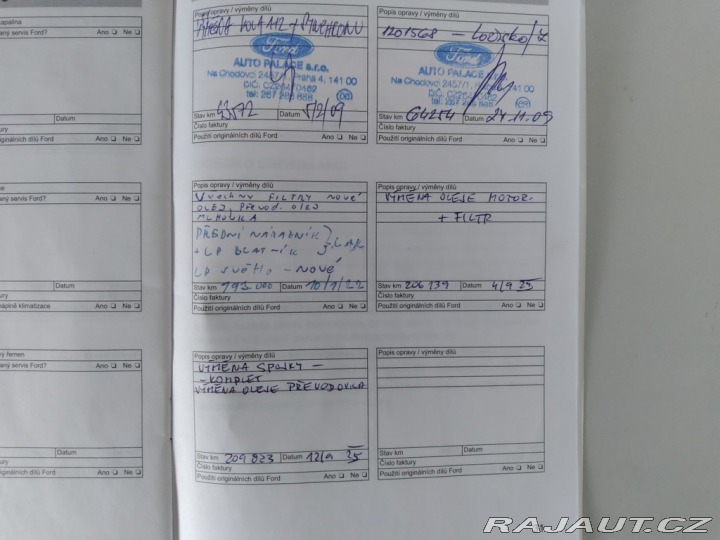 kapalina
aný servis Ford?
Ano ❑ Ne ❑
Datum
Ano ❑ Ne ❑
aný servis Ford?
Ano ❑ Ne ❑
náplně klimatizace
Ano ❑ Ne ❑
vý řemen
aný servis Ford?
Ano ❑ Ne ❑
Datum
Ano ❑ Ne ❑
Popis opravy / výměny dílů
Ford
AUTO PALACE s.r.o.
Na Chodovci 2457/1, Praha 4, 141 00
Stav km 43572 Datum 5/2/09
Číslo faktury
Použití originálních dílů Ford Ano ❑ Ne ❑
Popis opravy / výměny dílů
1201568 - Ložisko/Z
Ford
AUTO PALACE
Na Chodovci 2457/1, Praha 4, 141 00
Stav km 64254 Datum 24.11.09
Číslo faktury
Použití originálních dílů Ford Ano ❑ Ne ❑
Popis opravy / výměny dílů
VŠECHNY FILTRY NOVÉ
OLEJ, PŘEVOD. OLEJ
MLHOVKA
PŘEDNÍ NÁRAZNÍK
+ LP BLATNÍK } LAK
LP SVĚTLO - NOVÉ
Stav km 193 000 Datum 10/1/22
Číslo faktury
Použití originálních dílů Ford Ano ❑ Ne ❑
Popis opravy / výměny dílů
VÝMĚNA OLEJE MOTOR.
+ FILTR
Stav km 206 139 Datum 4/9 25
Číslo faktury
Použití originálních dílů Ford Ano ❑ Ne ❑
Popis opravy / výměny dílů
VÝMĚNA SPOJKY -
- KOMPLET
VÝMĚNA OLEJE PŘEVODOVKA
Stav km 209 823 Datum 12/9 25
Číslo faktury
Použití originálních dílů Ford Ano ❑ Ne ❑
Popis opravy / výměny dílů
Stav km Datum
Číslo faktury
Použití originálních dílů Ford Ano ❑ Ne ❑
RAJAUT.CZ